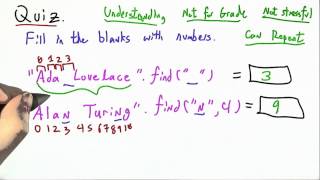 Quiz. Understanding Not for Grade Not stressful
Fill in the blanks with numbers. Can Repeat
0 1 2 3
"Ada Lovelace".find(" ") = 3
"Alan Turing".find("n",4) = 9
0 1 2 3 4 5 6 7 8 9 10